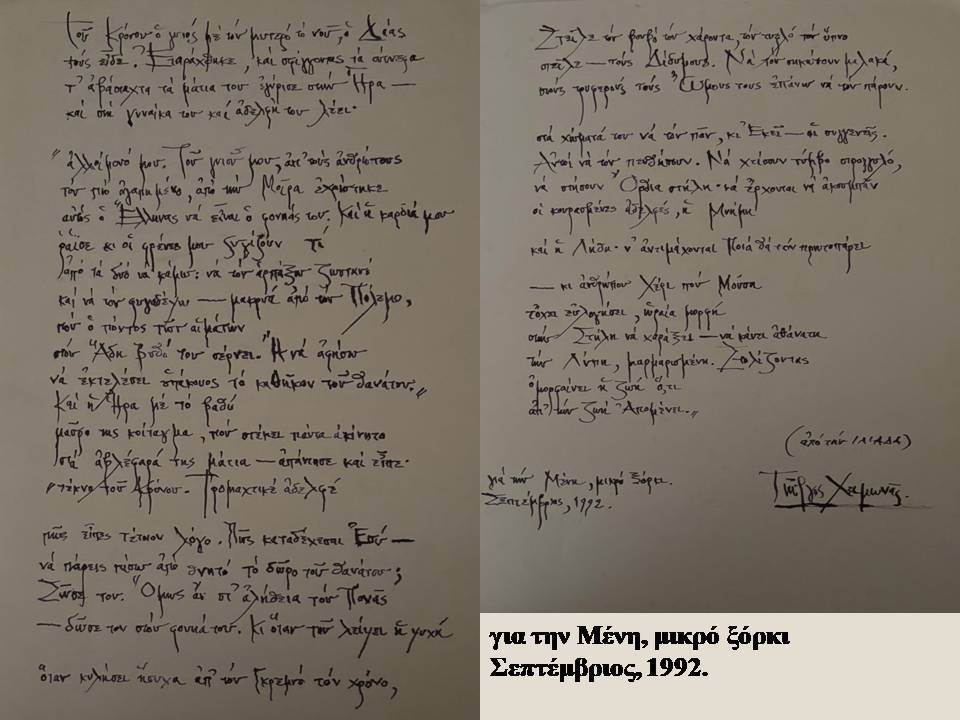 Τοῦ Κρόνου ὁ γυιός μὲ τόν μυτερό τό νοῦ, ὁ Δίας
τούς εἶδε. Ἐταράχθηκε, καί σφίγγοντας τά σύνεφα
τ' ἀβάσταχτα τά μάτια του ἐγύρισε στήν Ἥρα —
καί στή γυναίκα του καί ἀδελφή του λέει·
"ἀλλοίμονό μου. Τοῦ γυιοῦ μου, ἀπ' τούς ἀνθρώπους
τον πιό ἀγαπημένο, ἀπό τήν Μοῖρα ἐχρίστηκε
αὐτός ὁ Ἕλληνας νά εἶναι ὁ φονηάς του. Καί ἡ καρδιά μου
ράϊσε κι οἱ φρένες μου ζυγίζουν τί
ἀπό τά δυό νά κάμω: νά τόν ἁρπάξω ζωντανό
καί νά τόν φυγαδέψω — μακρυά ἀπό τόν Πόλεμο,
πού ὁ πόντος τῶν αἱμάτων
στόν Ἅδη βυθό του σέρνει. Ἤ νά ἀφήσω
νά ἐκτελέσει ὑπάκουος τό καθῆκον τοῦ θανάτου."
Καί ἡ Ἥρα μέ τό βαθύ
μαῦρο της κοίταγμα, πού στέκει πάντα ἀκίνητο
στά ἀβλέφαρά της μάτια — ἀπάντησε καί εἶπε·
"τέκνο τοῦ Κρόνου. Τρομαχτικέ ἀδελφέ
πῶς εἶπες τέτοιον λόγο. Πῶς καταδέχεσαι Ἐσύ —
νά πάρεις πίσω ἀπό θνητό τό δῶρο τοῦ θανάτου;
Σῶσε τον. Ὅμως ἄν στ' ἀλήθεια τόν Πονᾶς
— δῶσε τον στόν φονιά του. Κι ὅταν τοῦ λείψει ἡ ψυχή
ὅταν κυλήσει ἥσυχα ἀπ' τόν Γκρεμό τόν χρόνο,
Στεῖλε τόν βουβό τον χάροντα, τόν τυφλό τόν ὕπνο
στεῖλε — τούς Δίδυμους. Νά τόν σηκώσουν μαλακά,
στούς τρυφερούς τούς Ὤμους τους ἐπάνω νά τόν πάρουν.
στά χώματά του νά τόν πᾶν, κι Ἐκεῖ — οἱ συγγενῆς.
Αὐτοί νά τόν πενθήσουν. Νά χτίσουν τύμβο στρογγυλό,
νά στήσουν Ὄρθια στήλη· νά ἔρχονται ν' ἀκουμπᾶν
οἱ κουρασμένες ἀδελφές, ἡ Μνήμη
καί ἡ Λήθη· ν' ἀντιμάχονται Ποιά θά τόν πρωτοπάρει
— κι ἀνθρώπου Χέρι πού Μούσα
τὄχει εὐλογήσει, ὡραία μορφή
στήν Στήλη νά χαράξει — νά κάνει ἀθάνατη
τήν Λύπη, μαρμαρωμένη. Στολίζοντας
ὀμορφαίνει ἡ ζωή ὅ,τι
ἀπ' τήν ζωή Ἀπομένει."
(ἀπό τήν ΙΛΙΑΔΑ)
γιά τήν Μένη, μικρό ξόρκι.
Σεπτέμβρης, 1992.
Γιῶργος Χειμωνᾶς.
για την Μένη, μικρό ξόρκι
Σεπτέμβριος, 1992.